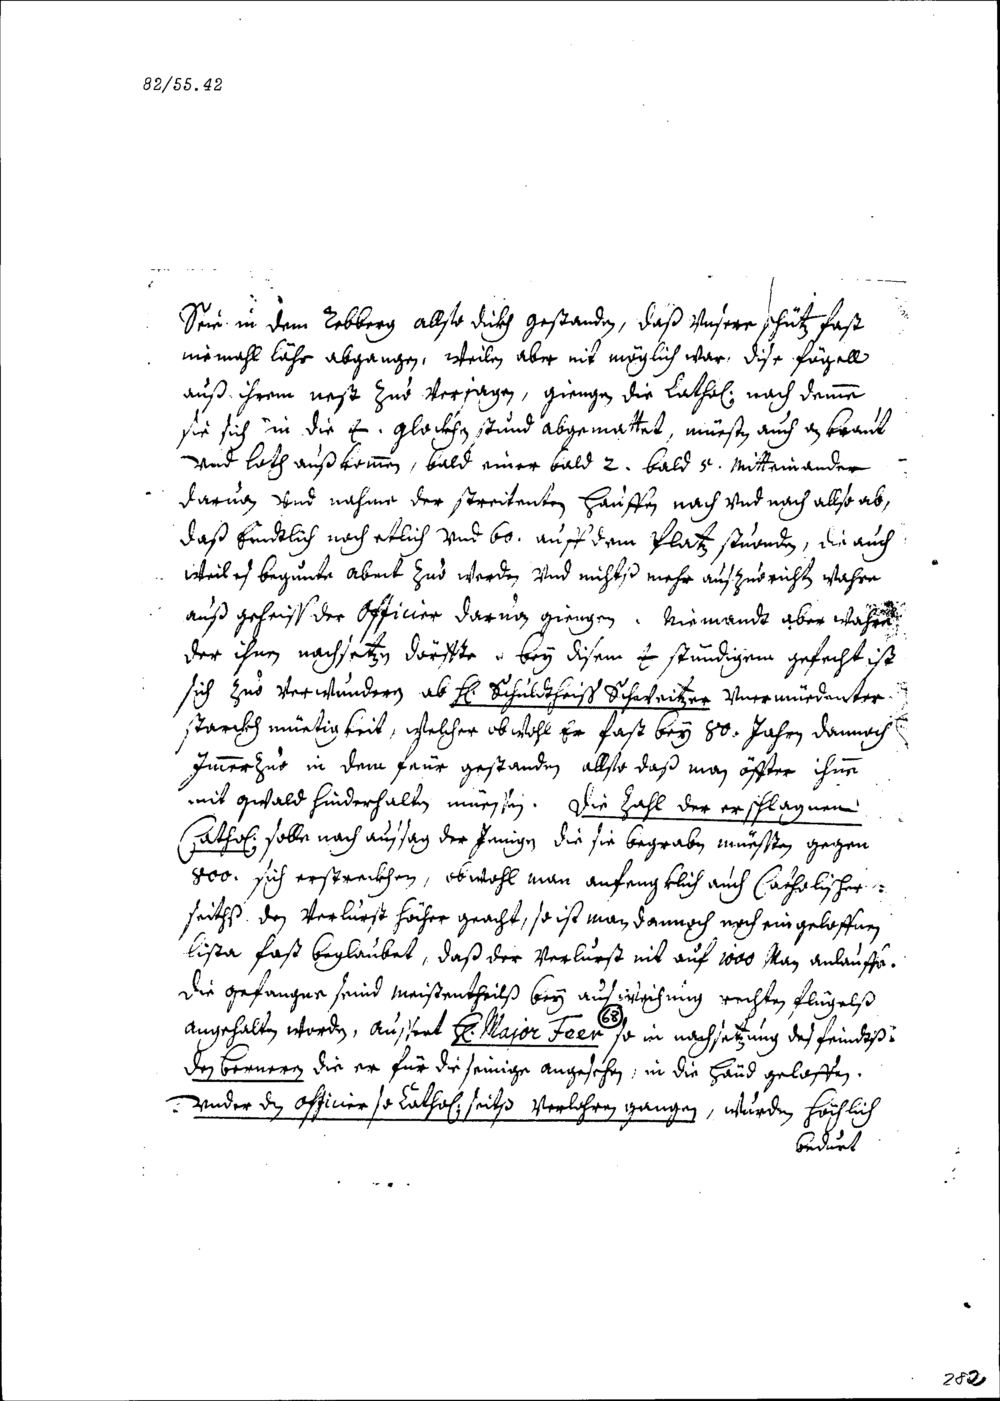 82/55.42
Sein in dem Rebberg allso dickh gestanden, daß Unsere schütz fast
niemahl lähr abgangen, weilen aber nit möglich war dise fögell
auß ihrem nest zuo verjagen, giengen die Cathol: nach deme
sie sich in die glockhen stund abgemattet, müesten auch an kraut
und loth außkommen, bald einer bald 2. bald 5. Mitteinander
darvon und nahme der streitenten hauffen nach und nach allso ab,
daß Endtlich noch etlich und 60. auff dem Platz stuonden, die auch
weil es begunte abent zuo werden und nichts mehr auszuorichten wahre
auß geheiss der Officier darvon giengen. Niemandt aber wahre
der ihnen nachsetzen dörffte. bey disem stündigem gefecht ist
sich zuo verwunderen ab H. Schuldtheiss Schweitzer Unermüedenter
starckhmüetigkeit, welcher obwohl Er fast bey 80. Jahren dannoch
Immerzuo in dem feür gestanden allso daß man öffter ihne
mit gwald hinderhalten müessen. Die Zahl der erschlagnen
Cathol: solle nach aussag der Jenigen die sie begraben müessten gegen
800. sich erstreckhen, obwohl man anfengklich auch Catholischer
seiths den Verlurst höher geacht, so ist man dannoch nach eingeloffnen
lista fast beglaubet, daß der Verlurst nit auf 1000 Man anlauffe.
Die gefangne seind meistentheilß bey ausweichung rechten flügelß
angehalten worden, aussert H. Major Feer 68 so in nachsetzung des feindtß
den Bernern die er für die seinige angesehen, in die händ geloffen.
Under den officier so Cathol: seits verlohren gangen, wurden höchlich
bedurt
282